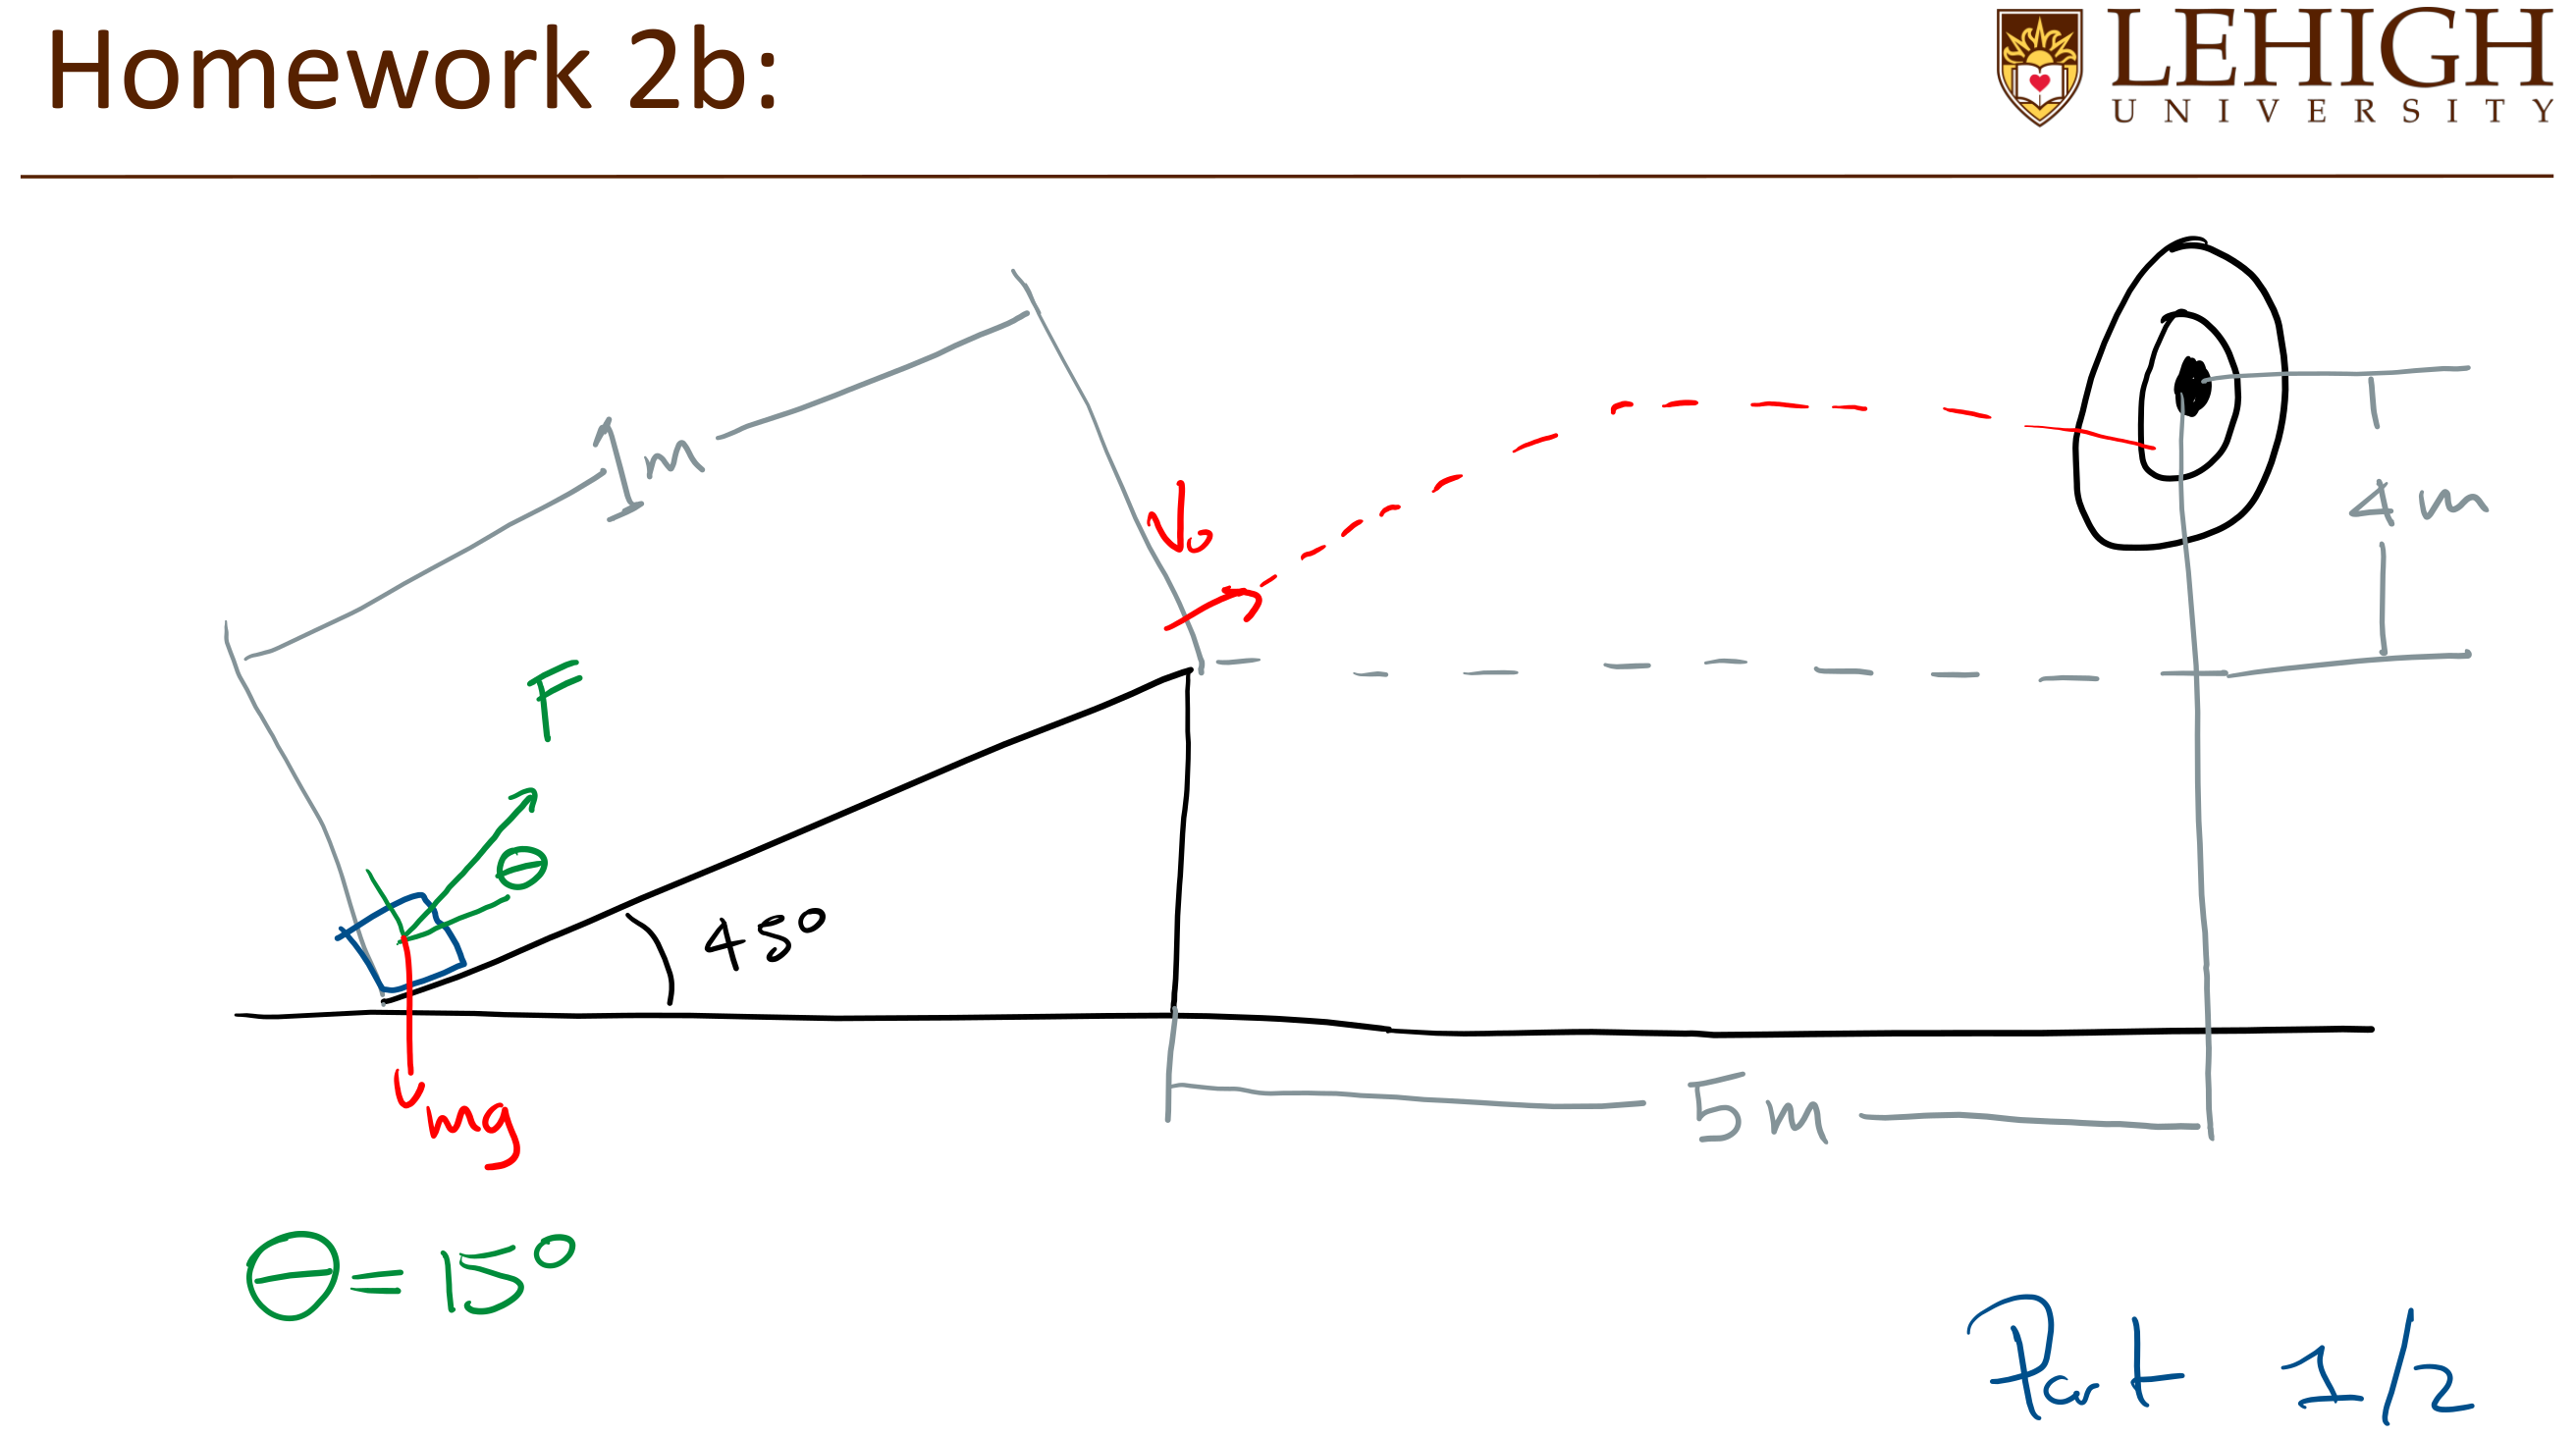 Homework 2b:
LEHIGH
UNIVERSITY
1m
V₀
4m
F
θ
45°
mg
5m
θ = 15°
Part 1/2